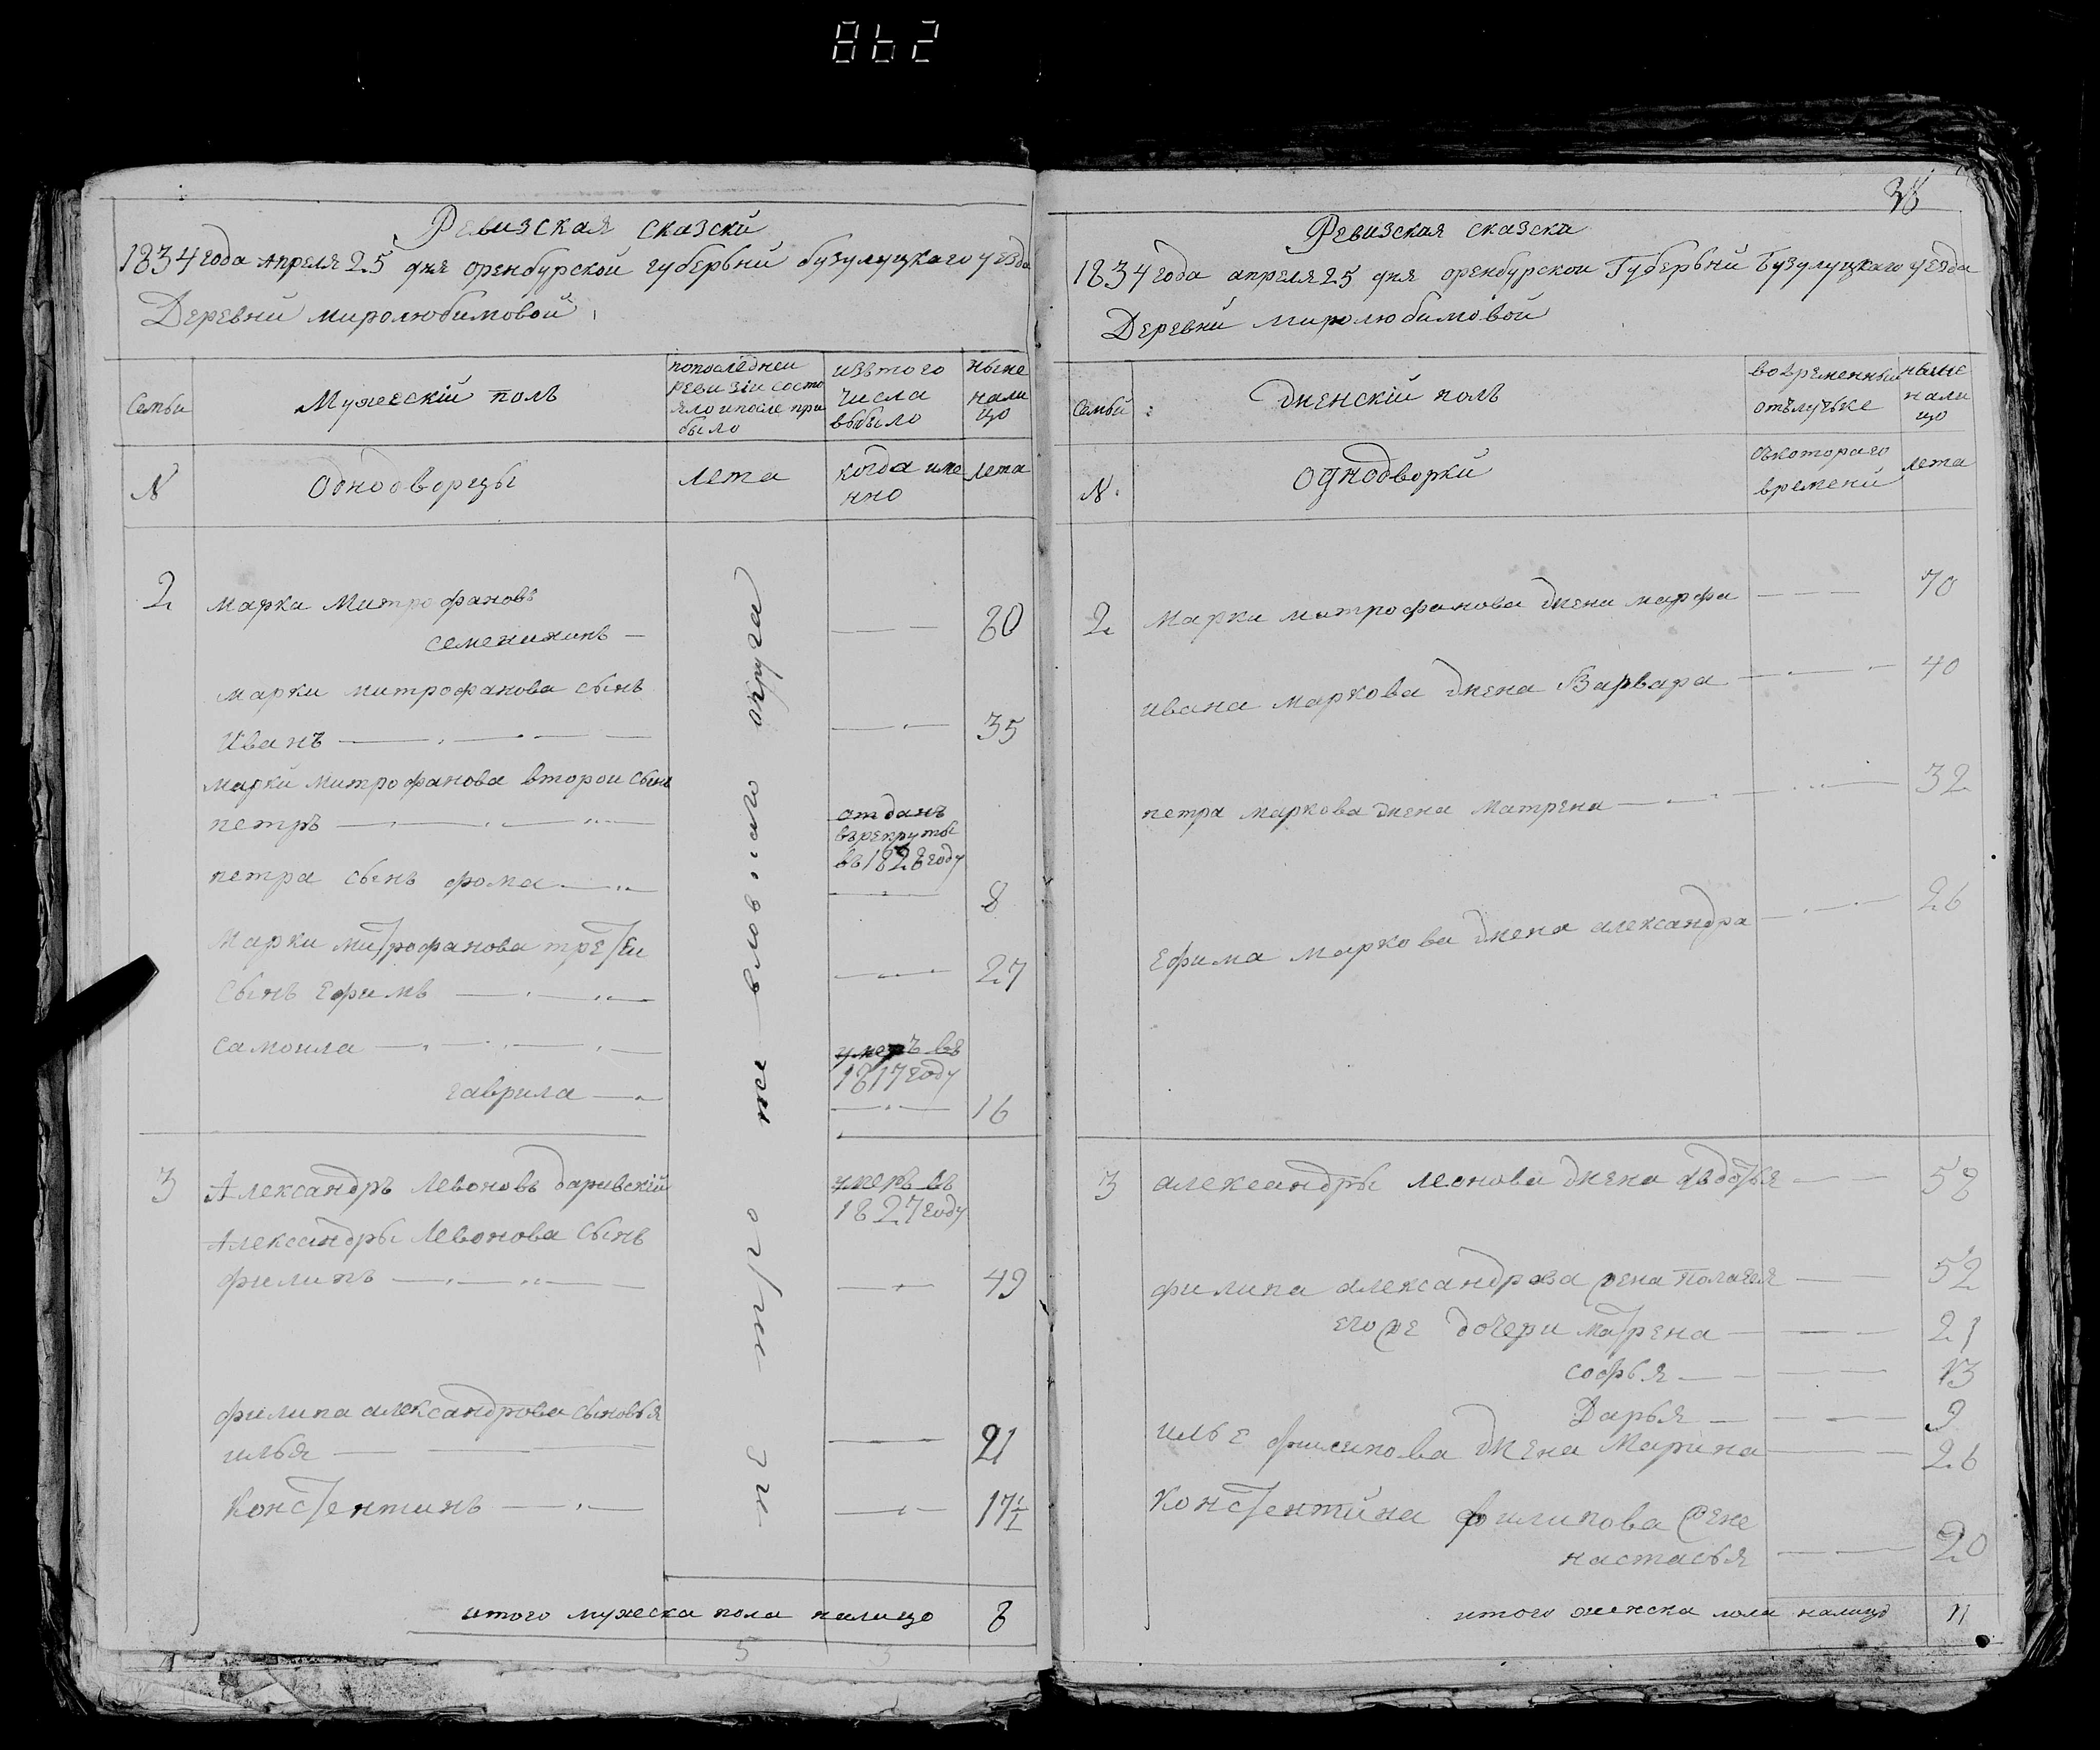 862
Ревизская сказки
1834 года апреля 25 дня оренбурской губерьнии бузулуцкаго уезда
Деревни миролюбимовой
Семьи
Мужескій полъ
попоследней ревизіи состояло и после прибыло
изътого числа выбыло
ныне налицо
N
Однодворцы
лета
когда именно
лета
2
Марка Митрофановъ
семенихинъ
80
марки митрофанова сынъ
Иванъ
35
марки митрофанова второи сынъ
петръ
отданъ въ рекруты въ 1828 году
петра сынъ фома
8
Марки митрофанова третеи
сынъ Ефимъ
27
самоила
умеръ въ 1817 году
гаврила
16
3
Александръ Левоновъ
умеръ въ 1827 году
Александры Левонова сынъ
филипъ
49
филипа александрова сыновья
илья
21
Констентинъ
17 1/2
того же округа
итого мужеска пола налицо 8
5 3
38
Ревизская сказка
1834 года апреля 25 дня оренбурской Губерьнии Бузулуцкаго уезда
Деревни миролюбимовой
семьи
женскій полъ
во временный отълучъке
ныне налицо
N.
однодворки
съкотораго времени
лета
2
Марки митрофанова жена марфа 70
ивана маркова жена Варвара 40
петра маркова жена Матрена 32
Ефима маркова жена александра 26
3
александры леонова жена 58
филипа александрова жена 52
его же дочери матрена 21
софья 13
Дарья 9
илье филипова жена Марина 26
Констентина филипова жене
настасья 20
итого женска пола налицо 11